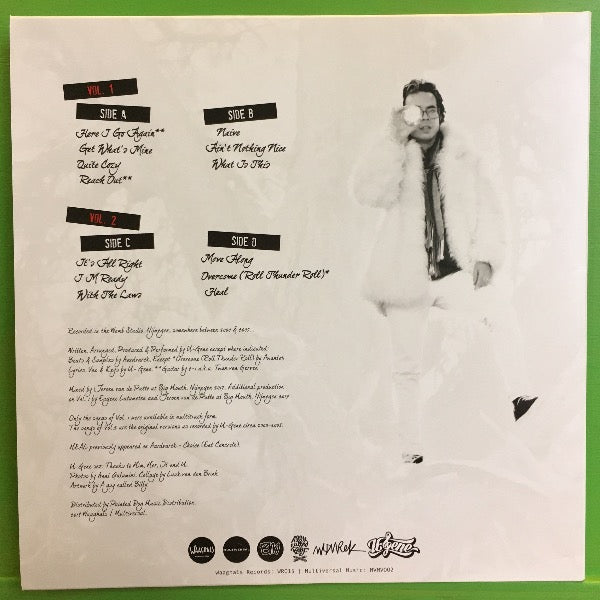 VOL. 1
SIDE A
Here I Go Again**
Get What's Mine
Quite Cozy
Reach Out**
SIDE B
Naive
Ain't Nothing Nice
What Is This
VOL. 2
SIDE C
It's All Right
I M Ready
With The Laws
SIDE D
Move Along
Overcome (Roll Thunder Roll)*
Heal
Recorded in the Womb Studio, Nijmegen, somewhere between 2002 & 2005.
Written, Arranged, Produced & Performed by U-Gene except where indicated.
Beats & Samples by Aardvarck, Except *Overcome (Roll Thunder Roll) by Arantes
Lyrics, Vox & Keys by U-Gene. ** Guitar by t-1 a.k.a. Twan van Gerven
Mixed by Jeroen van de Putte at Big Mouth, Nijmegen 2017. Additional production
on Vol. 1 by Eugene Lutumetse and Jeroen van de Putte at Big Mouth, Nijmegen 2017
Only the songs of Vol. 1 were available in multitrack form.
The songs of Vol. 2 are the original versions as recorded by U-Gene circa 2002-2005.
HEAL previously appeared on Aardvarck - Choice (Eat Concrete).
U-Gene Thanks to Him, Her, It and U.
Photos by Collage by Luuk van den Brink
Artwork by A guy called Billy
Distributed by Painted Dog Music Distribution.
2017 Waaghals | Multiversal.
WAAGHALS
MULTIVERSAL
U-gene
Waaghals Records: WRC15 | Multiversal Music: MVMV002